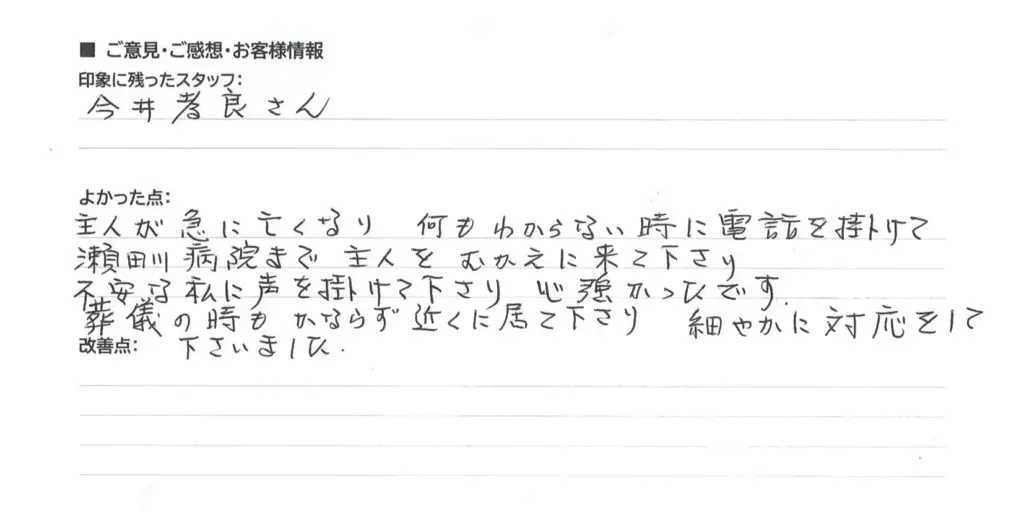 ■ ご意見・ご感想・お客様情報
印象に残ったスタッフ:
今井孝良さん
よかった点:
主人が急に亡くなり 何もわからない時に電話を掛けて
瀬田川病院まで主人をむかえに来て下さり
不安な私に声を掛けて下さり 心強かったです.
葬儀の時もかならず近くに居て下さり 細やかに対応をして
改善点: 下さいました.